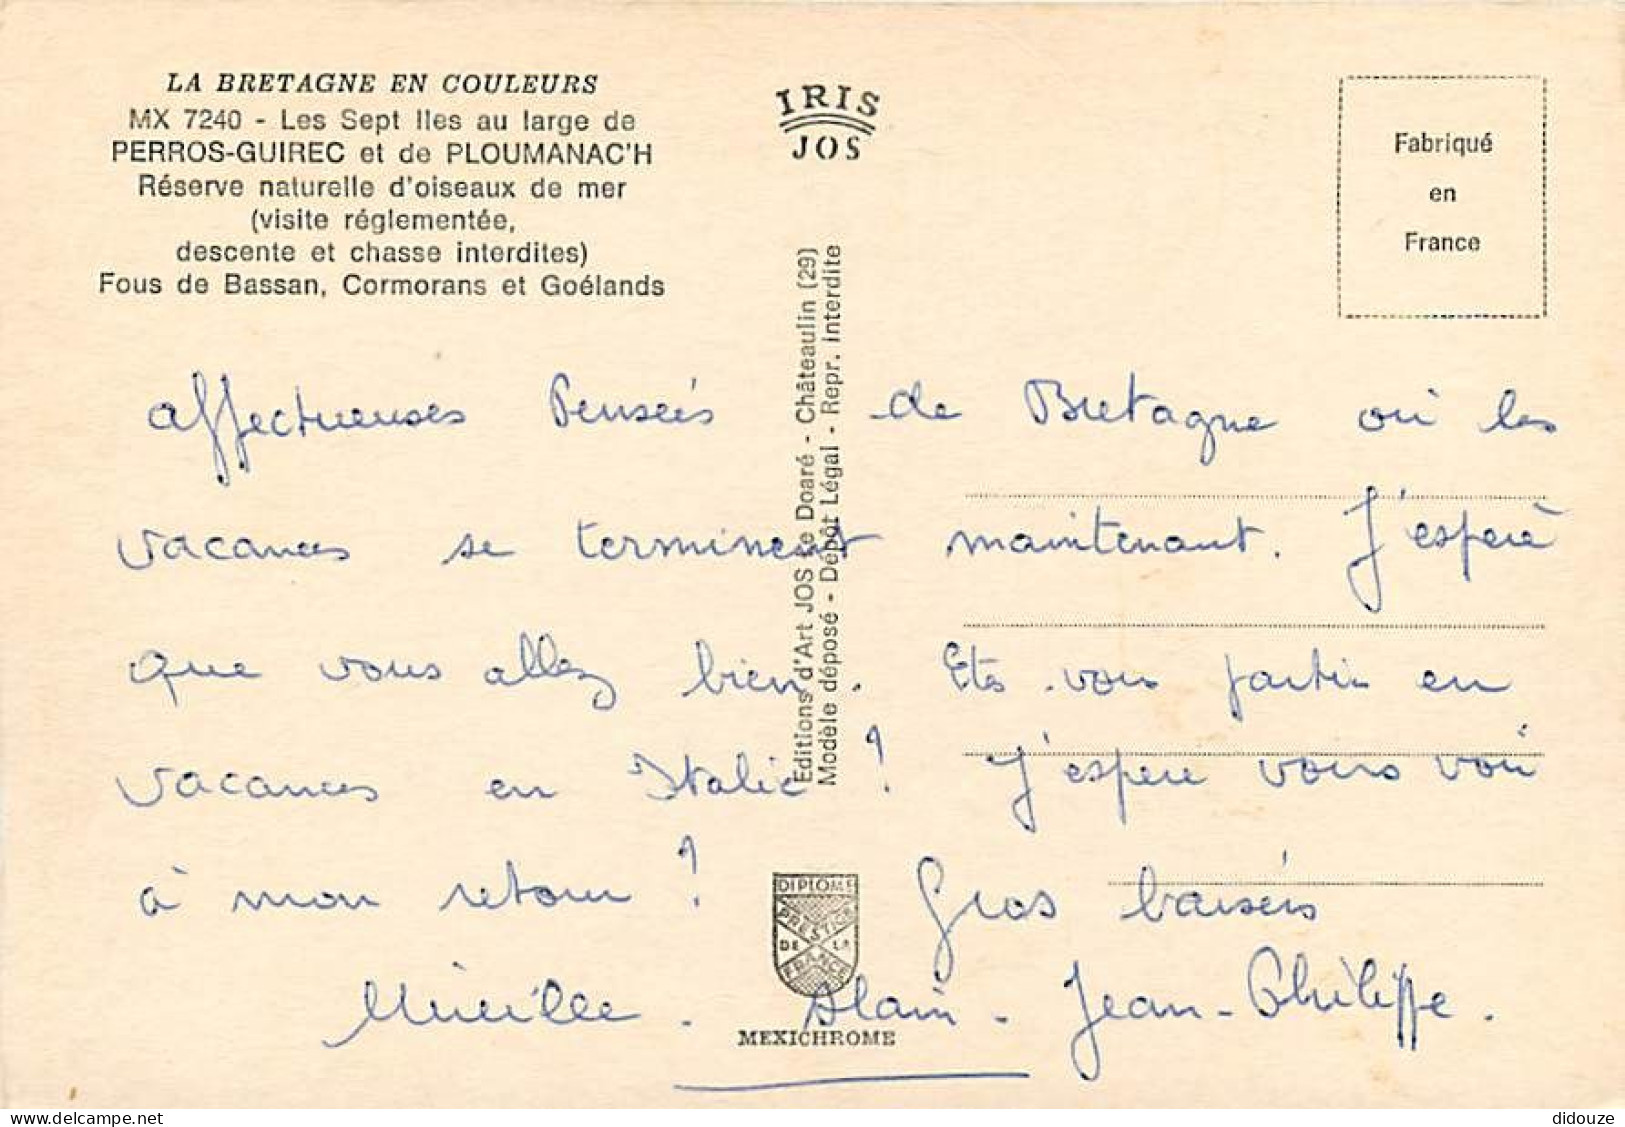 LA BRETAGNE EN COULEURS
MX 7240 - Les Sept Iles au large de
PERROS-GUIREC et de PLOUMANAC'H
Réserve naturelle d'oiseaux de mer
(visite réglementée,
descente et chasse interdites)
Fous de Bassan, Cormorans et Goélands
IRIS
JOS
Fabriqué
en
France
Editions d'Art JOS Le Doaré - Châteaulin (29)
Modèle déposé - Dépôt Légal - Repr. interdite
affectueuses Pensées de Bretagne où les
vacances se terminent maintenant. J'espère
que vous allez bien. Etes-vous partis en
vacances en Italie ? J'espère vous voir
à mon retour ? Gros baisers
Mireille. Alain. Jean-Philippe.
DIPLOME
PRESTIGE
DE LA
FRANCE
MEXICHROME
delcampe.net
didouze